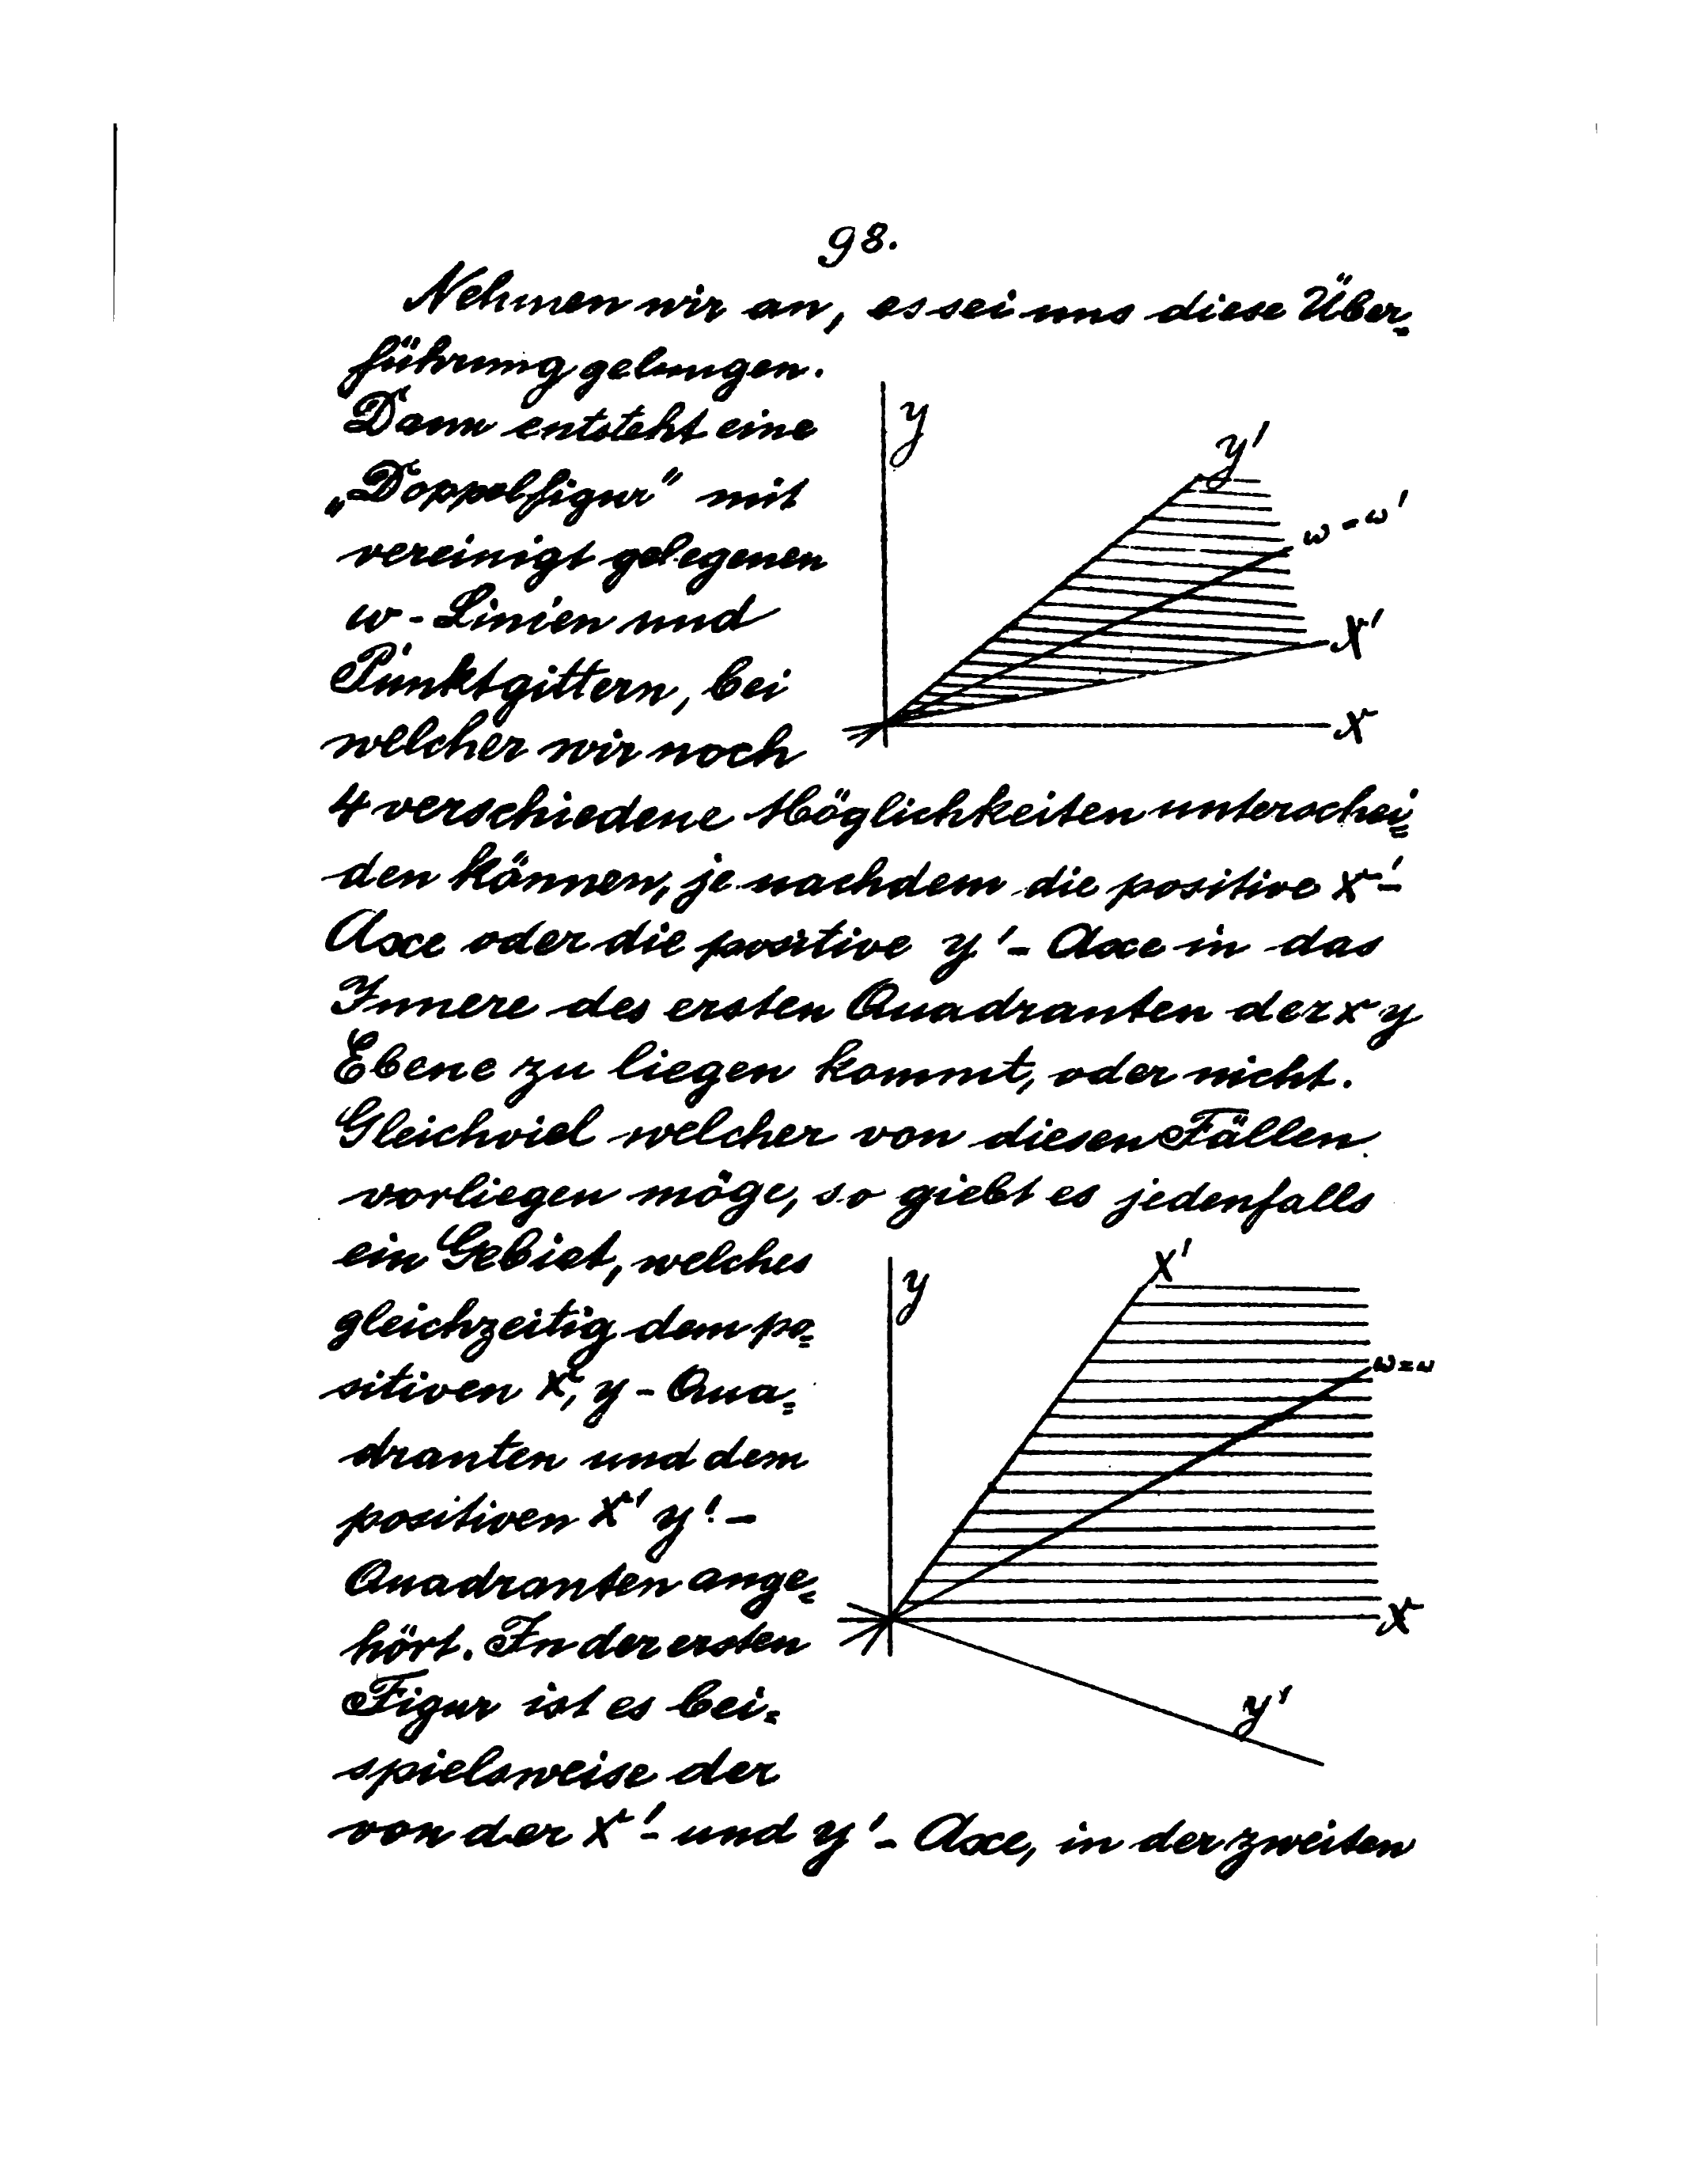 98.
Nehmen wir an, es sei uns diese Über=
führung gelungen.
Dann entsteht eine
„Doppelfigur" mit
vereinigt gelegenen
w - Linien und
Punktgittern, bei
welcher wir noch
4 verschiedene Möglichkeiten unterschei=
den können, je nachdem die positive x'-
Axe oder die positive y' - Axe in das
Innere des ersten Quadranten der x y
Ebene zu liegen kommt, oder nicht.
Gleichviel welcher von diesen Fällen
vorliegen möge, so giebt es jedenfalls
ein Gebiet, welches
gleichzeitig dem po=
sitiven x, y - Qua=
dranten und dem
positiven x' y' -
Quadranten ange=
hört. In der ersten
Figur ist es bei=
spielsweise der
von der x'- und y' - Axe, in der zweiten
y
y'
ω = ω'
x'
x
y
x'
ω = ω
x
y'